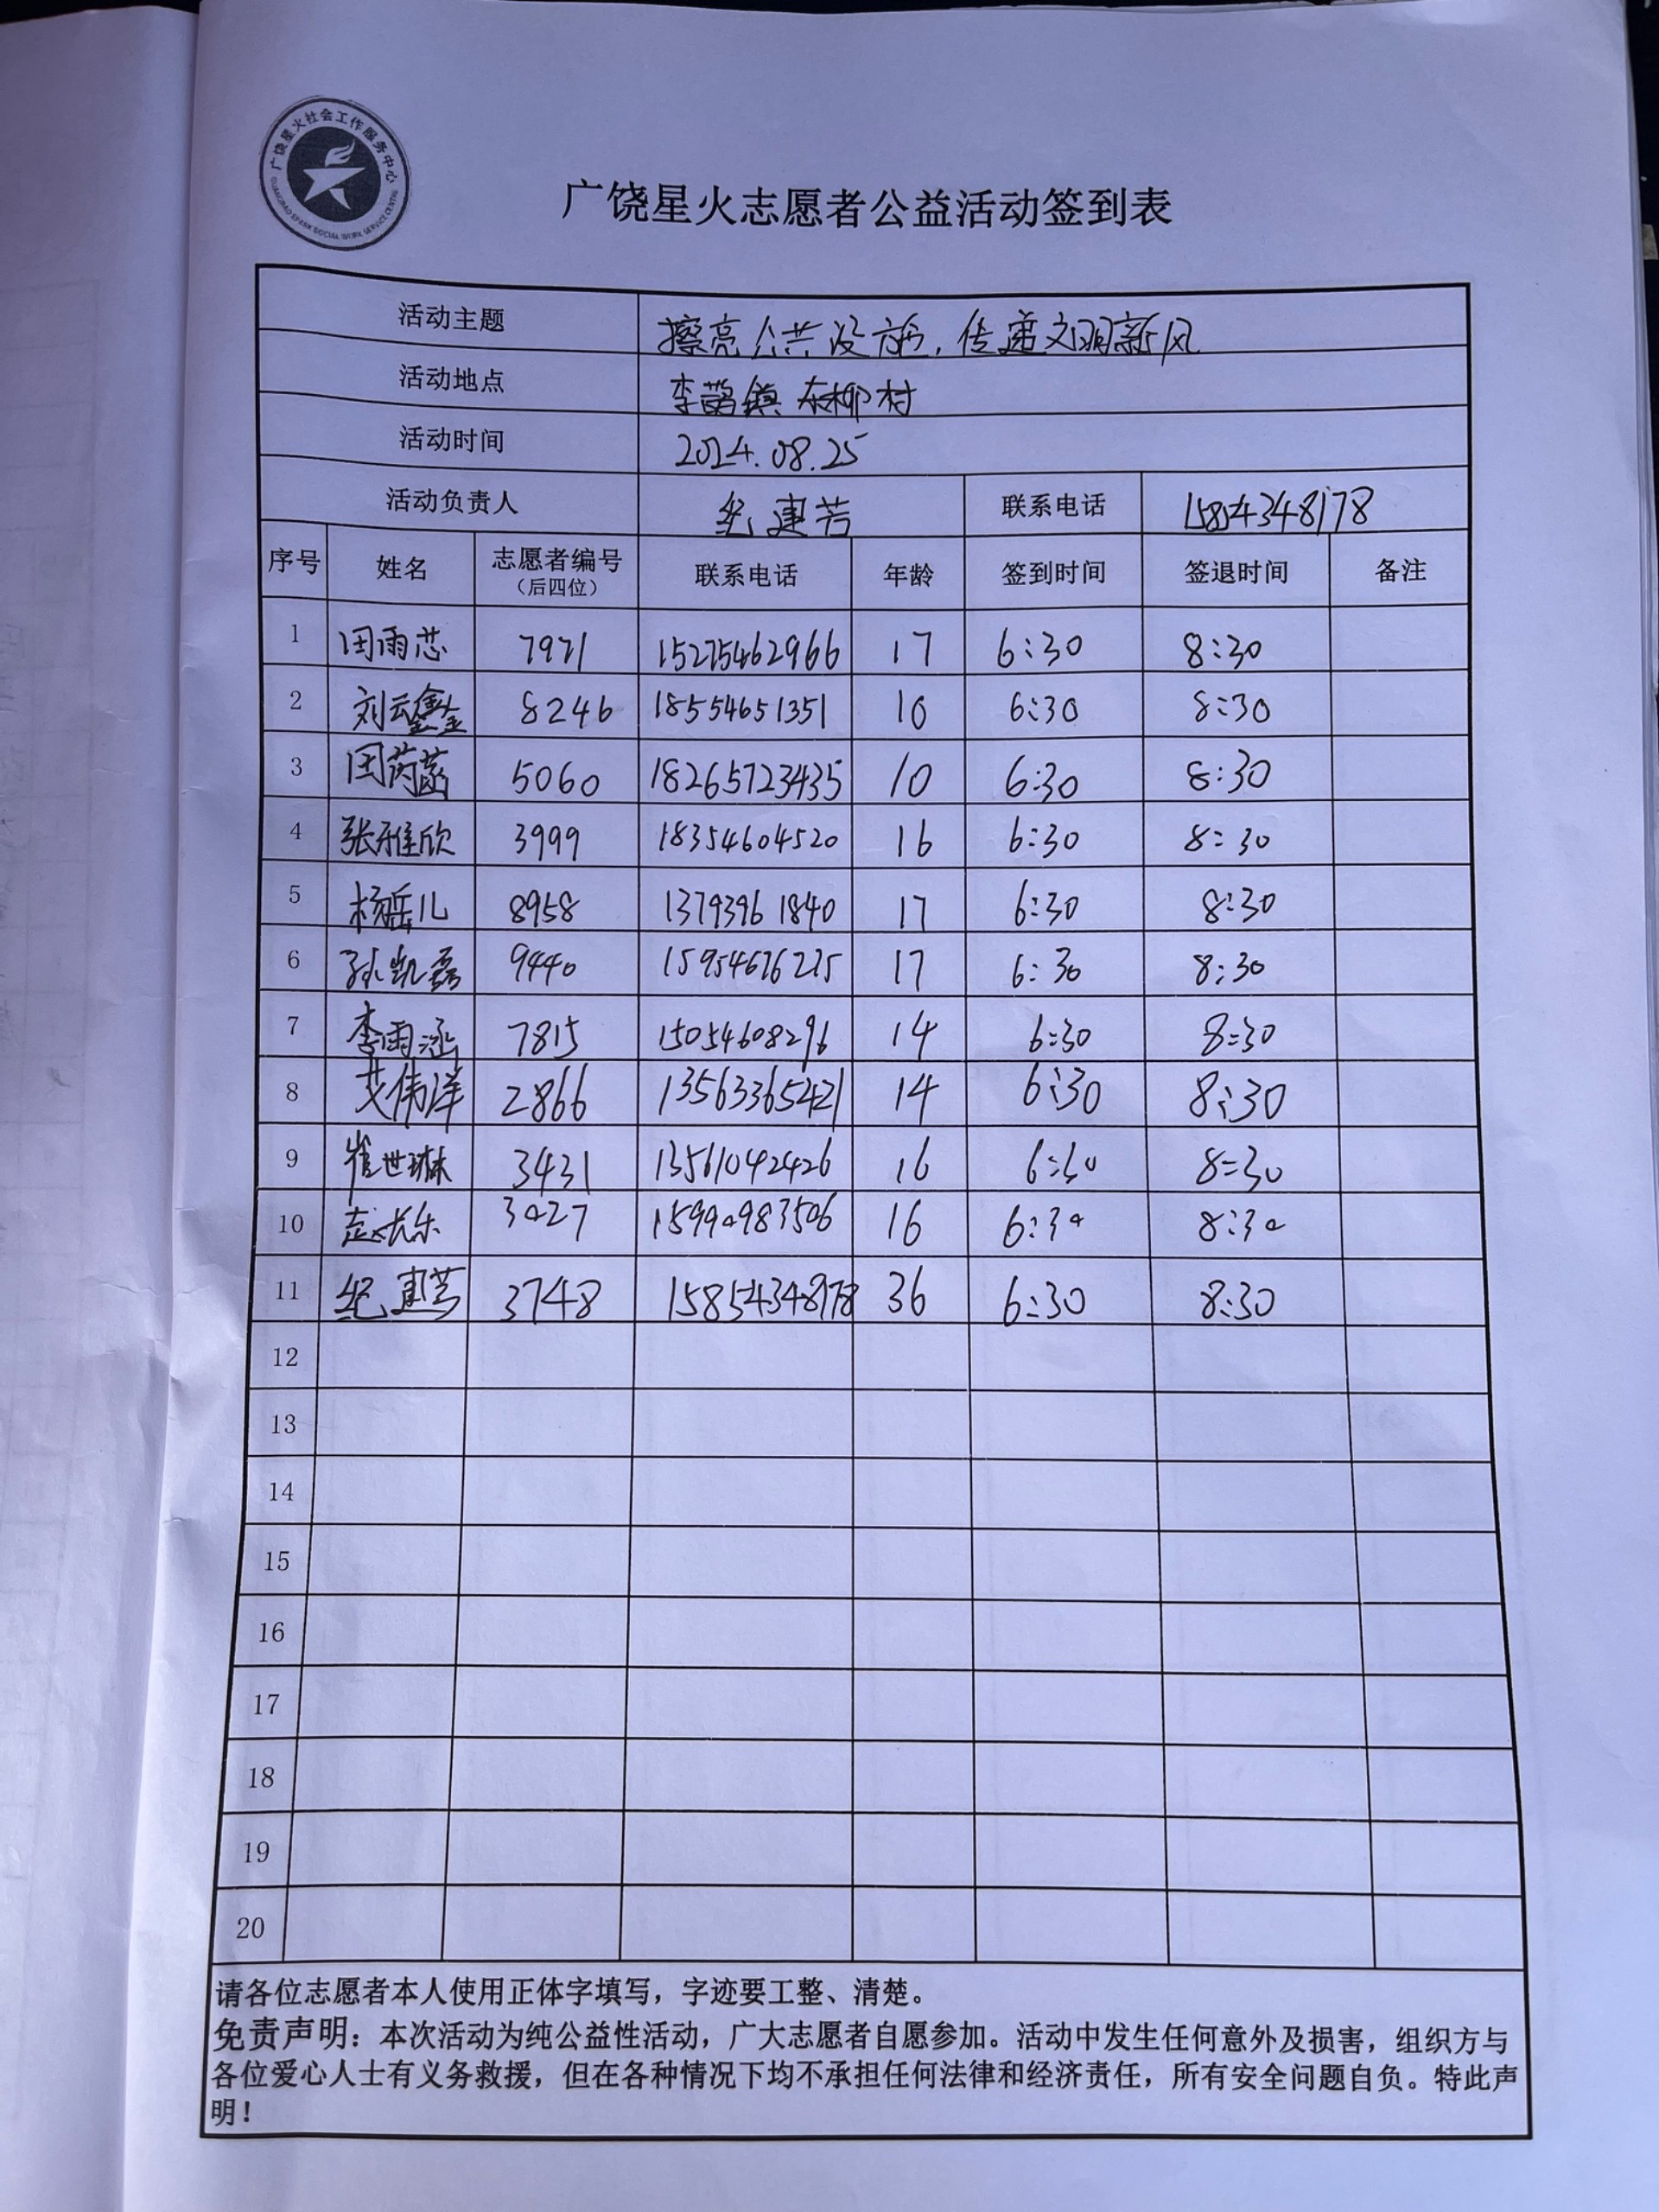 广饶星火社会工作服务中心
GUANGRAO SPARK SOCIAL WORK SERVICE CENTRE
广饶星火志愿者公益活动签到表
活动主题 擦亮公共设施,传递文明新风
活动地点 李鹊镇东柳村
活动时间 2024.08.25
活动负责人 纪建芳 联系电话 15854348178
序号 姓名 志愿者编号(后四位) 联系电话 年龄 签到时间 签退时间 备注
1 田雨芯 7971 15275462966 17 6:30 8:30
2 刘云鑫 8246 18554651351 10 6:30 8:30
3 田芮菡 5060 18265723435 10 6:30 8:30
4 张雅欣 3999 18354604520 16 6:30 8:30
5 杨岳儿 8958 13793961840 17 6:30 8:30
6 孙凯磊 9440 15954676275 17 6:30 8:30
7 李雨涵 7815 15054608296 14 6:30 8:30
8 艾伟洋 2866 13563365421 14 6:30 8:30
9 崔世琳 3431 13561042426 16 6:30 8:30
10 赵长乐 3027 15990983506 16 6:30 8:30
11 纪建芳 3748 15854348178 36 6:30 8:30
12
13
14
15
16
17
18
19
20
请各位志愿者本人使用正体字填写,字迹要工整、清楚。
免责声明:本次活动为纯公益性活动,广大志愿者自愿参加。活动中发生任何意外及损害,组织方与
各位爱心人士有义务救援,但在各种情况下均不承担任何法律和经济责任,所有安全问题自负。特此声
明!